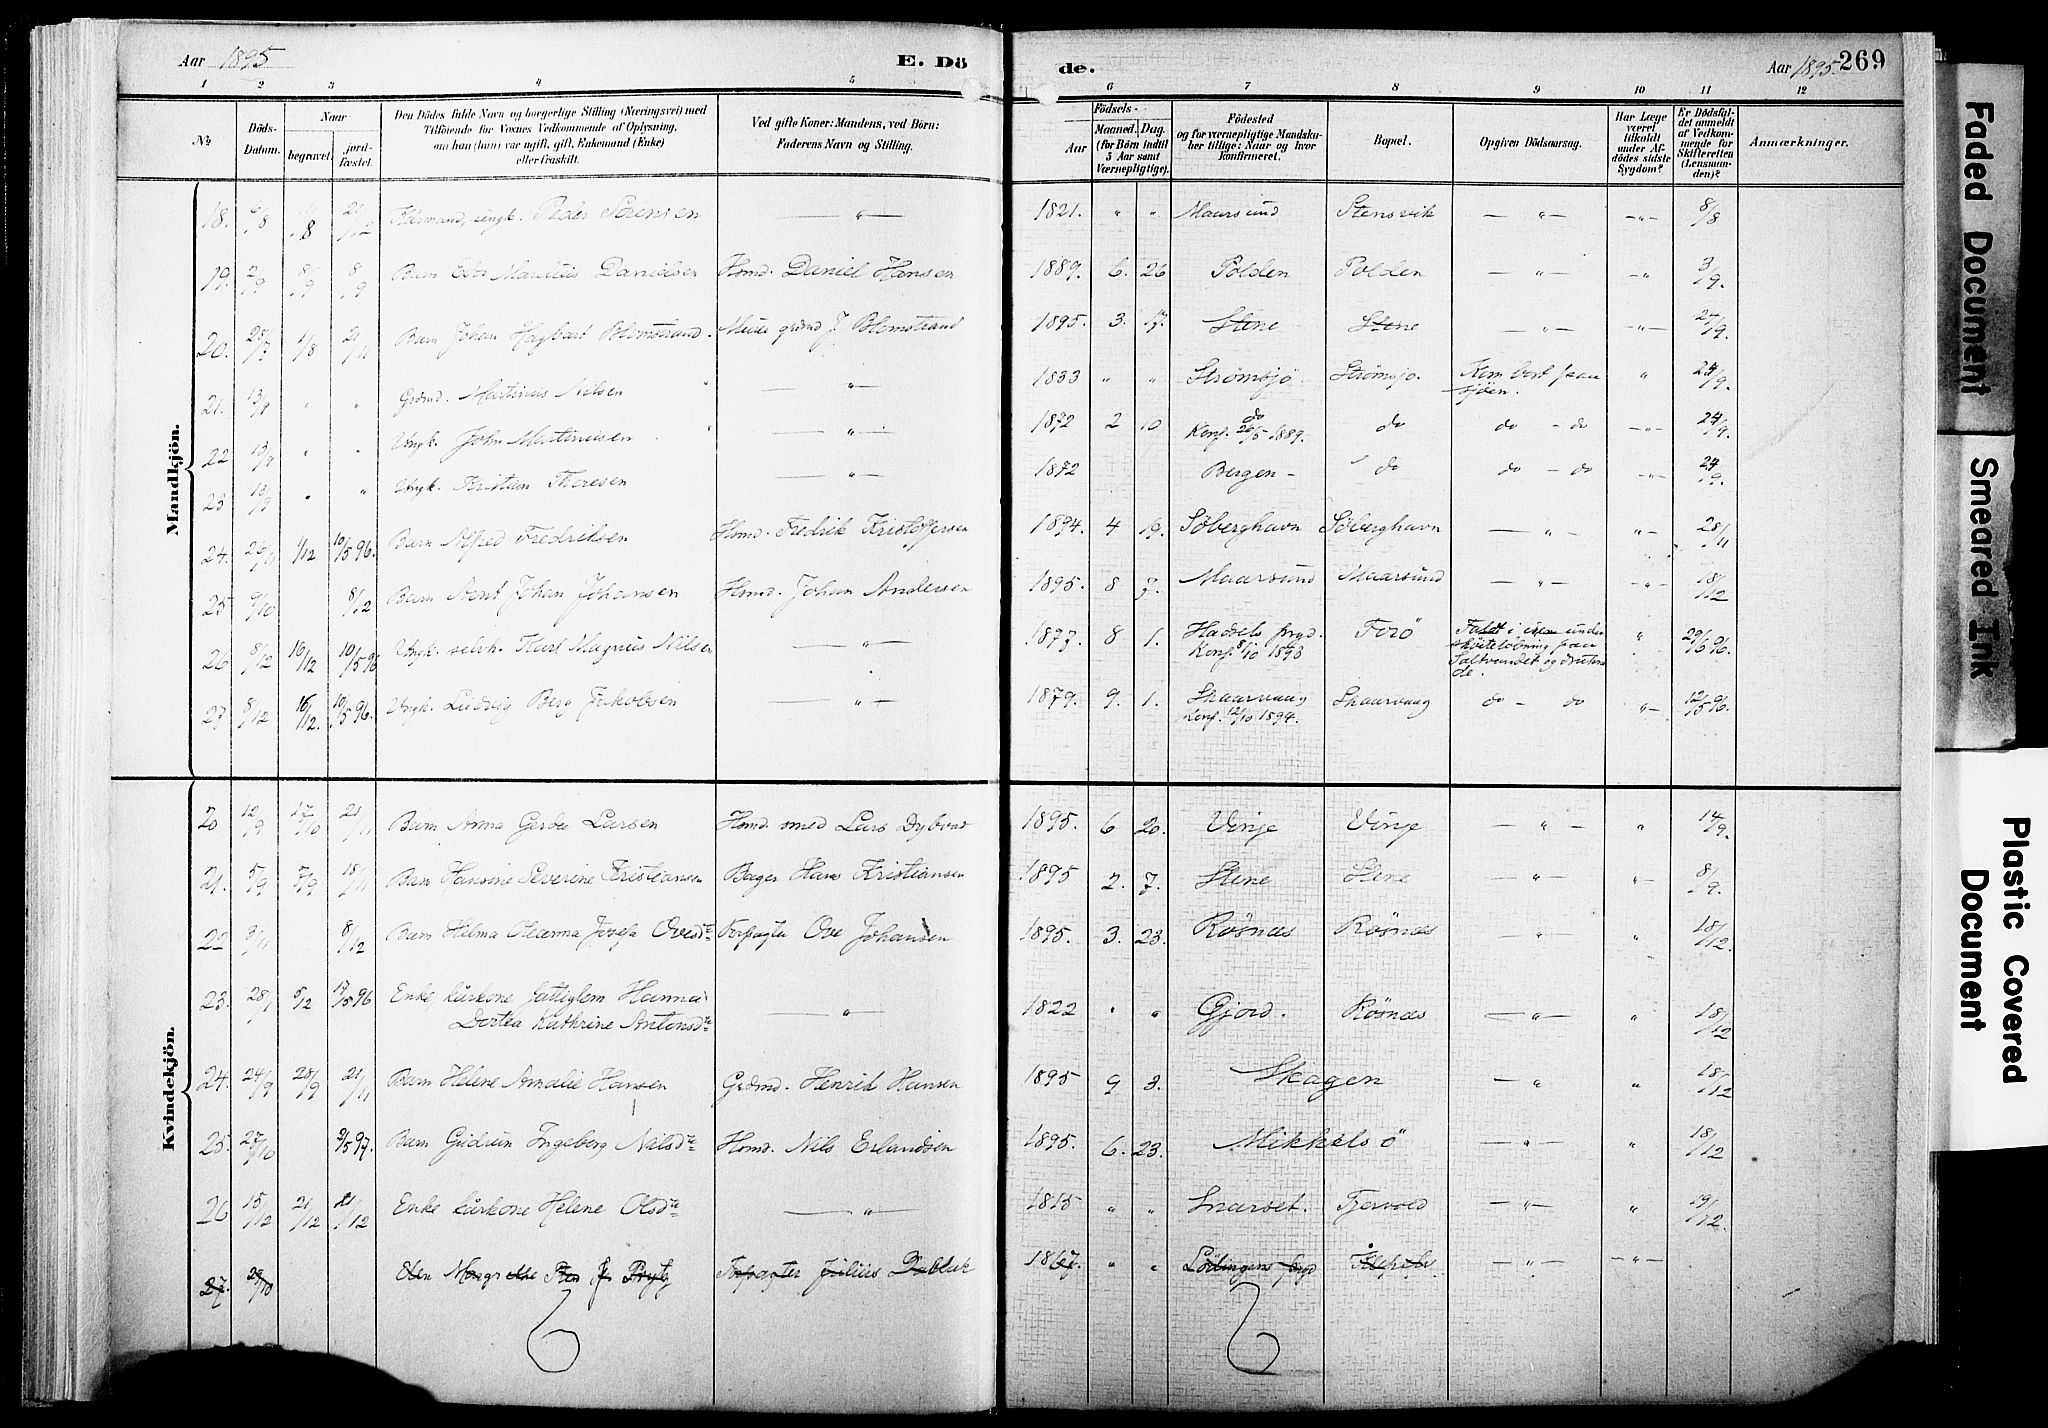 Aar 1895
E. Dö
de.
Aar 1895. 269
1 2 3 4 5 6 7 8 9 10 11 12
No
Döds-Datum.
Naar
begravet.
jord-fæstet.
Den Dödes fulde Navn og borgerlige Stilling (Næringsvei) med
Tilföiende for Voxnes Vedkommende af Oplysning,
om han (hun) var ugift, gift, Enkemand (Enke)
eller fraskilt.
Ved gifte Koner: Mandens, ved Börn:
Faderens Navn og Stilling.
Födsels-
Aar
Maaned. Dag.
(for Börn indtil
5 Aar samt
Værnepligtige).
Födested
og for værnepligtige Mandsku-
ber tillige: Naar og hvor
konfirmeret.
Bopæl.
Opgiven Dödsaarsag.
Har Læge
været
tilkaldt
under Af-
dödes sidste
Sygdom?
Er Dödsfal-
det anmeldt
af Vedkom-
mende for
Skifteretten
(Lensman-
den)?
Anmærkninger.
Mandkjön.
18. 6/8 11/8 21/12 Kårmand, ungk. Peder Sörensen — " — 1821. " " Maarsund Stensvik — " — — " — 8/8
19. 2/9 8/9 8/9 Barn Martius Danielsen Hsmd. Daniel Hansen 1889. 6. 26 Polden Polden — " — — " 3/9.
20. 25/7 1/8 21/11 Barn Johan Hagbart Blomstrand. J. Blomstrand 1895. 3. 17. Stene Stene — " — — " — 24/9.
21. 13/9 " " Grdmd. Martinus Nilsen — " — 1833 " " Strömsjö Strömsjö. Kom bort paa sjöen. " 24/9.
22 13/9 " " Ungk. John Martinusen — " — 1872 2 10 do Konf. 26/5 1889. do do – do — " — 24/9.
23 13/9 " " Ungk. Kristian Thoresen — " — 1872 Bergen – do do – do — " — 24/9.
24. 26/11 1/12 10/5 96. Barn Alfred Fredriksen Hsmd. Fredrik Kristoffersen 1894. 4 19. Söberghavn Söberghavn — " — " — 28/11
25 9/10 8/12 Barn Arnt Johan Johansen Hsmd. Johan Andersen 1895. 8 7. Maarsund Maarsund — " — — " — 18/12
26 8/12 16/12 10/5 96 Ungk. selvh. Karl Magnus Nilsen — " — 1877. 8 1. Hadsels prgd. Konf. 8/10 1893 Forö Faldt i isen under sköitelöbning paa Saltvandet og druknede. " 29/6 96.
27 8/12 16/12. 10/5 96. Ungk. Ludvig Berg Jakobsen — " — 1879. 9. 1. Skaarvaag Konf. 12/10 1894. Skaarvaag do – do " — 12/5 96.
Kvindekjön.
20 12/9 17/10 21/11 Barn Anna Gerda Larsen Hsmd. smed Lars Dybvad 1895. 6 20. Vinje Vinje — " — " 14/9.
21. 5/9 7/9 18/11 Barn Hansine Severine Kristiansen Bager Hans Kristiansen 1895 2. 7. Stene Stene — " — " — 8/9.
22 3/11 8/12 Barn Hilma Oleanna Josefa Ovesdtr Forpagter Ove Johansen 1895. 3. 23. Rösnæs Rösnæs — " — " 18/12.
23. 28/ 5/12 17/5 96 Enke kårkone fattiglem Hanna
Dortea Kathrine Antonsdtr — " — 1822 " " Gjord. Rösnæs — " — " 18/12
24. 24/9 28/9 21/11 Barn Helene Amalie Hansen Grdmd. Henrik Hansen 1895 9 3. Skagen — " " 18/12
25. 27/10 9/5 97. Barn Gudrun Ingeberg Nilsdtr Hsmd. Nils Erlandsen 1895. 6. 23. Mikkelsö — " — " 18/12
26 15/12 21/12 21/12 Enke kårkone Helene Olsdtr — " — 1815 " " Snarset. Tjervold — " — " 19/12.
27. 29/10 Forpagter Julius 1867. " " Lödingens prgd — " — — " —
6 6
Faded Document
Smeared Ink
Plastic Covered
Document